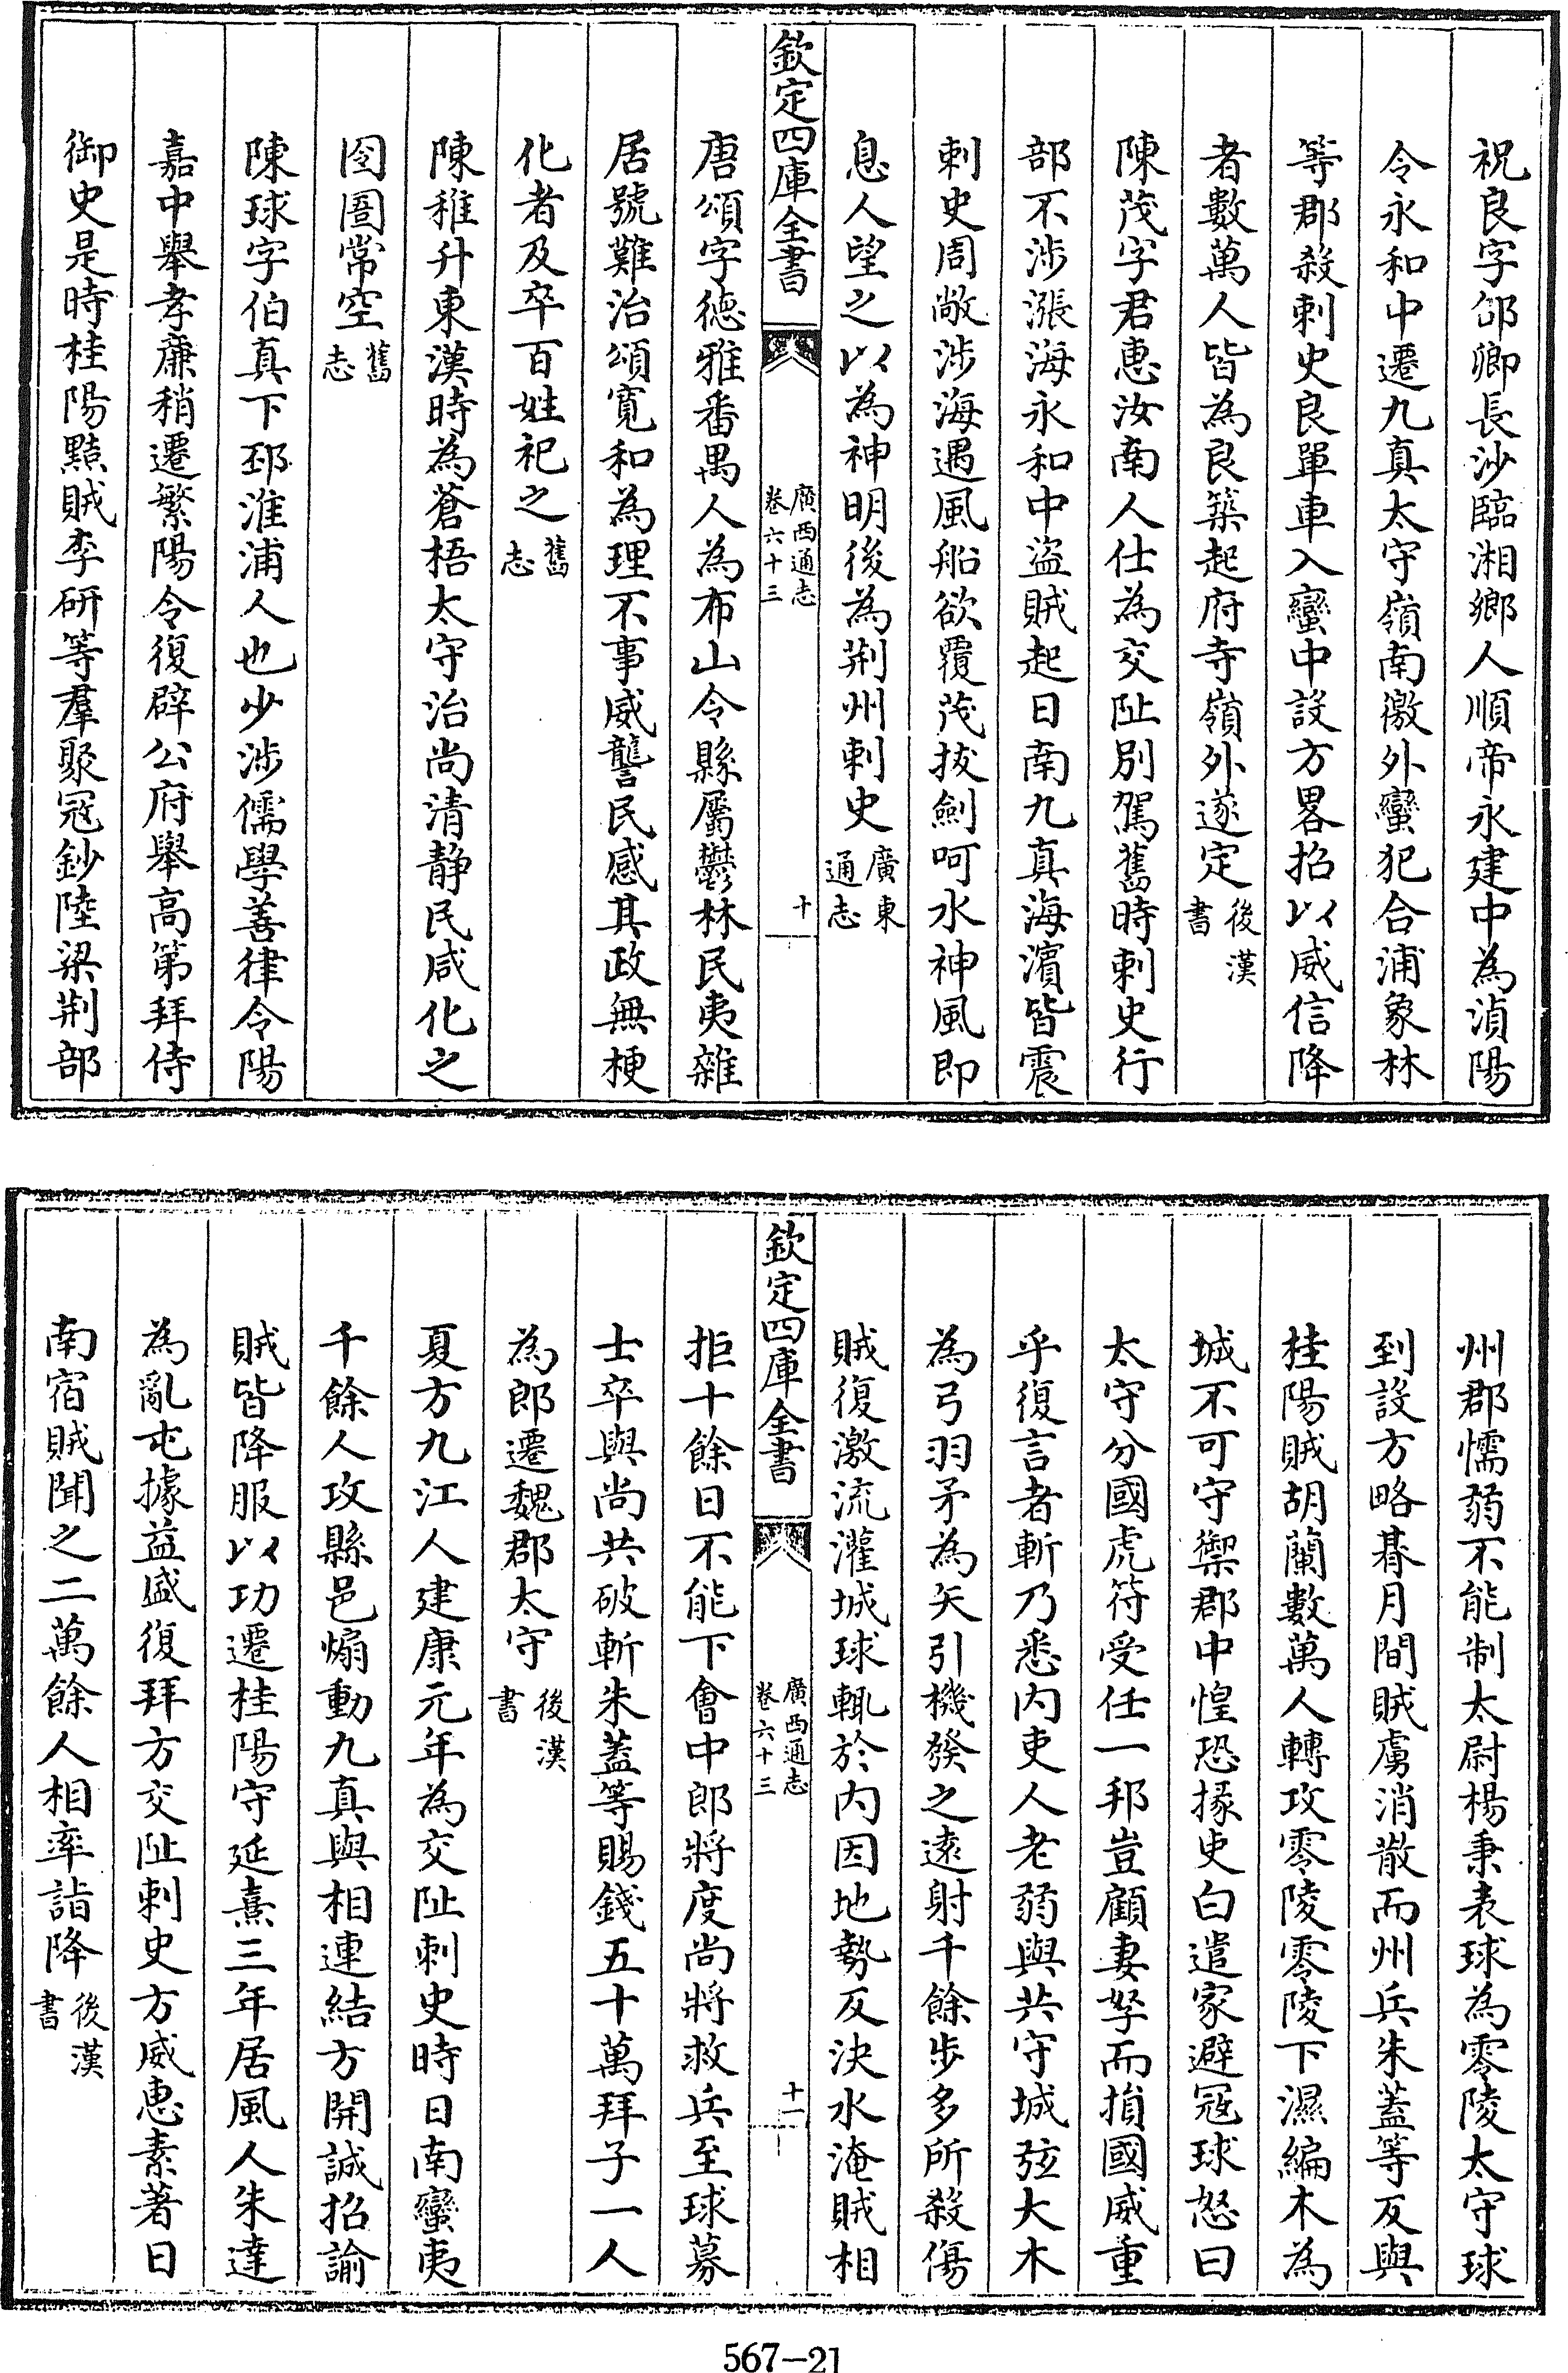 祝良字邵卿長沙臨湘鄉人順帝永建中為湞陽
令永和中遷九真太守嶺南徼外蠻犯合浦象林
等郡殺刺史良單車入蠻中設方畧招以威信降
者數萬人皆為良築起府寺嶺外遂定後漢書
陳茂字君惠汝南人仕為交阯別駕舊時刺史行
部不涉漲海永和中盜賊起日南九真海濵皆震
刺史周敞涉海遇風船欲覆茂拔劍呵水神風即
息人望之以為神明後為荆州刺史廣東通志
欽定四庫全書
廣西通志
卷六十三
十
唐頌字德雅番禺人為布山令縣屬鬱林民夷雜
居號難治頌寛和為理不事威讋民感其政無梗
化者及卒百姓祀之舊志
陳稚升東漢時為蒼梧太守治尚清静民咸化之
囹圄常空舊志
陳球字伯真下邳淮浦人也少涉儒學善律令陽
嘉中舉孝亷稍遷繁陽令復辟公府舉高第拜侍
御史是時桂陽黠賊李研等羣聚冦鈔陸梁荆部
州郡懦弱不能制太尉楊秉表球為零陵太守球
到設方略朞月間賊虜消散而州兵朱蓋等反與
桂陽賊胡蘭數萬人轉攻零陵零陵下濕編木為
城不可守禦郡中惶恐掾吏白遣家避冦球怒曰
太守分國虎符受任一邦豈顧妻孥而損國威重
乎復言者斬乃悉内吏人老弱與共守城弦大木
為弓羽矛為矢引機發之遠射千餘步多所殺傷
賊復激流灌城球輒於内因地勢反決水淹賊相
欽定四庫全書
廣西通志
卷六十三
十一
拒十餘日不能下會中郎將度尚將救兵至球募
士卒與尚共破斬朱蓋等賜錢五十萬拜子一人
為郎遷魏郡太守後漢書
夏方九江人建康元年為交阯刺史時日南蠻夷
千餘人攻縣邑煽動九真與相連結方開誠招諭
賊皆降服以功遷桂陽守延熹三年居風人朱達
為亂屯據益盛復拜方交阯刺史方威惠素著日
南宿賊聞之二萬餘人相率詣降後漢書
567-21